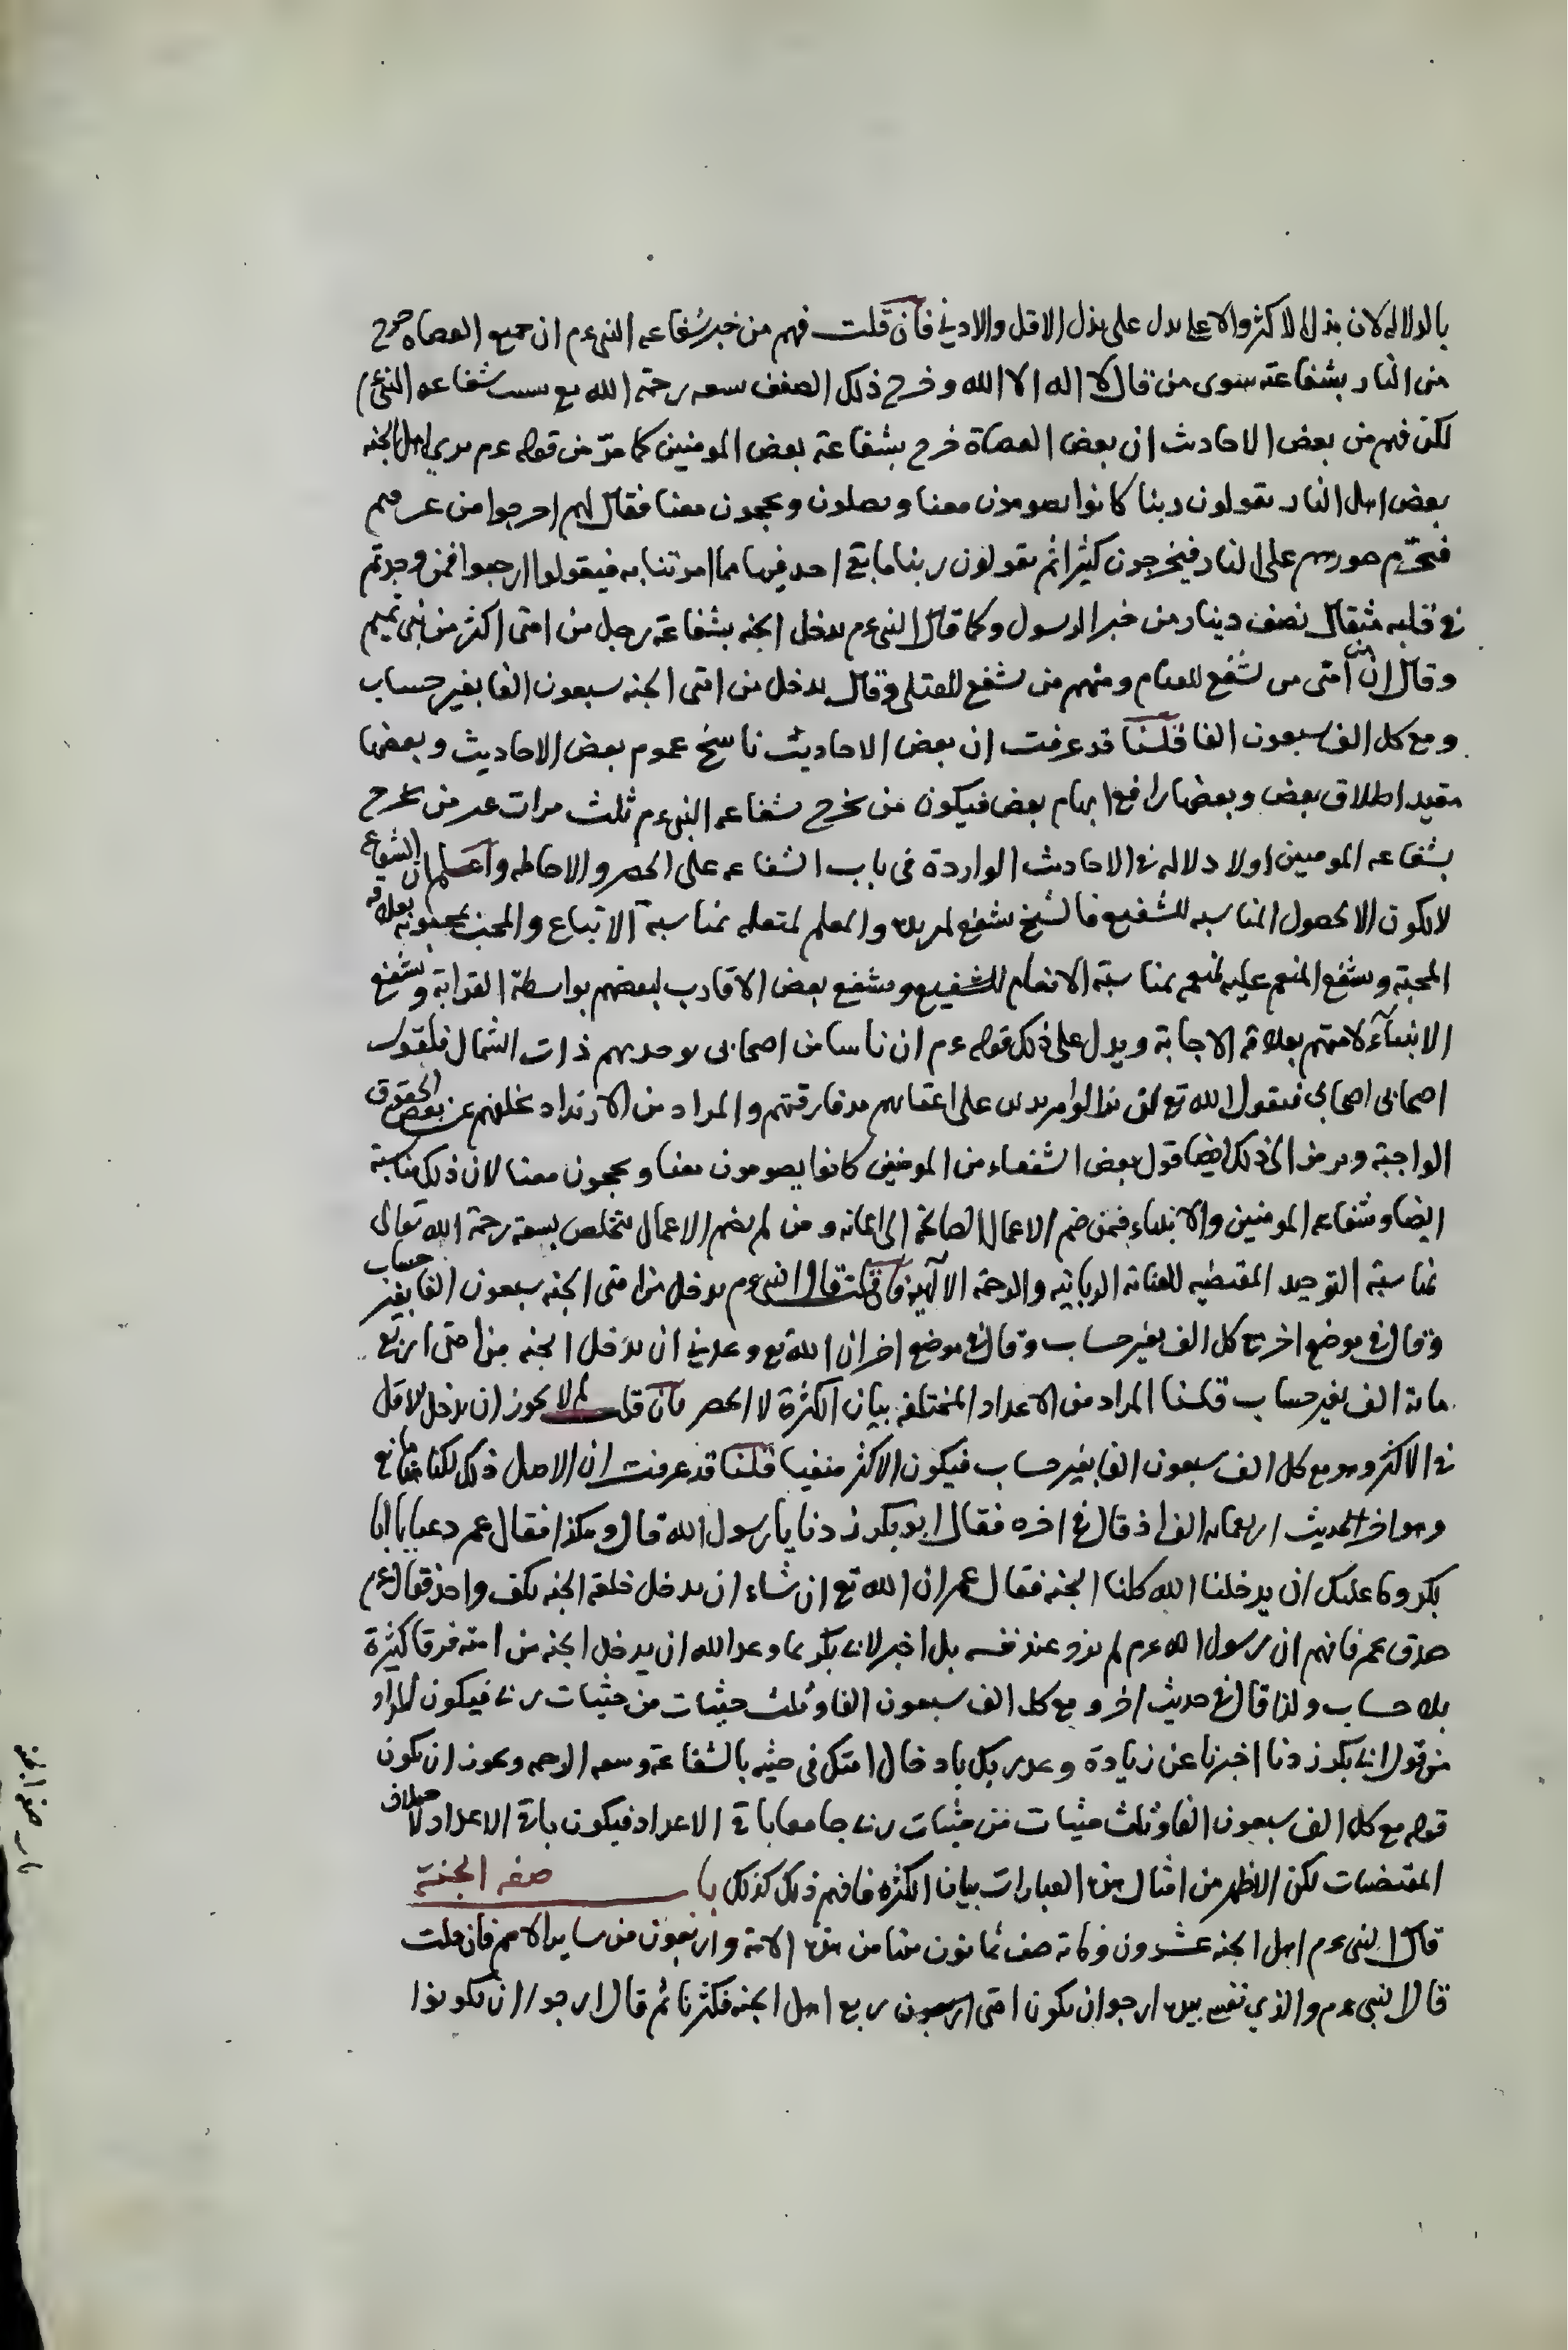 بالدلاله لان بذل الاكثر والاعلى يدل على بذل الاقل والادنى فان قلت فهم من خبر شفاعه النبى عم ان جميع العصاه خرج
من النار بشفاعته سوى من قال لا اله الا الله وخرج ذلك الصنف سعه رحمة الله تع بسبب شفاعه النبى عم
لكن فهم من بعض الاحاديث ان بعض العصاة خرج بشفاعة بعض المومنين كما مر من قوله عم اهل الجنه
بعض اهل النار يقولون ربنا كانوا يصومون معنا ويصلون ويحجون معنا فقال لهم اخرجوا من عرفتم
صورهم على النار فيخرجون كثيرا ثم يقولون ربنا ما بقى احد فيها مما امرتنا به فيقول ارجعوا فمن وجدتم
فى قلبه مثقال نصف دينار من خير الرسول وكما قال النبى عم يدخل الجنه بشفاعة رجل من امتى اكثر من بنى تميم
وقال ان من امتى من يشفع للفئام ومنهم من يشفع وقال يدخل من امتى الجنه سبعون الفا بغير حساب
ومع كل الف سبعون الفا قلنا قد عرفت ان بعض الاحاديث ناسخ عموم بعض الاحاديث وبعضها
مقيد اطلاق بعض وبعضها رافع ابهام بعض فيكون من يخرج بشفاعه النبى عم ثلث مرات من يخرج
بشفاعه المومنين اولا دلاله فى الاحاديث الواردة فى باب الشفاعه على الحصر والاحاطه واعلم ان الشفاعه
لا يكون الا بحصول المناسبه للشفيع فالشيخ يشفع لمريده والمعلم لمتعلمه بمناسبة الاتباع والمحب لمحبوبه بعلاقه
المحبة ويشفع المنعم عليه لمنعمه بمناسبة الانعام للشفيع ويشفع بعض الاقارب لبعضهم بواسطة القرابة ويشفع
الانبياء لامتهم بعلاقه الاجابة ويدل على ذلك قوله عم ان ناسا من اصحابى يوخذ بهم ذات الشمال فاقول
اصحابى اصحابى فيقول الله تع لن يزالوا مرتدين على اعقابهم مذ فارقتهم والمراد من الارتداد تخلفهم عن بعض الحقوق
الواجبة ويرمز الى ذلك ايضا قول بعض الشفعاء من المومنين كانوا يصومون معنا ويحجون معنا لان ذلك مناسبة
ايضا وشفاعه المومنين والانبياء فمن ضم الاعمال الصالحة الى ايمانه ومن لم يضم الاعمال يتخلص بسعة رحمة الله تعالى
بمناسبة التوحيد المقتضيه للعناية الربانيه والرحمة الالهية فان قلت قال النبى عم يدخل من امتى الجنه سبعون الفا بغير حساب
وقال فى موضع اخر مع كل الف بغير حساب وقال فى موضع اخر ان الله تع وعدنى ان يدخل الجنه من امتى اربع
مائه الف بغير حساب قلنا المراد من الاعداد المختلفه بيان الكثرة لا الحصر فان قلت لم لا يجوز ان يدخل الاقل
فى الاكثر وهو مع كل الف سبعون الفا بغير حساب فيكون الاكثر منفيا قلنا قد عرفت ان الاصل ذلك لكن هنا مانع
وهو اخر الحديث اربعمائه الف اذ قال فى اخره فقال ابو بكر زدنا يا رسول الله قال وهكذا فقال عمر دعنا يا ابا
بكر وما عليك ان يدخلنا الله كلنا الجنه فقال عمر ان الله تع ان شاء ان يدخل خلقه الجنه بكف واحد فقال عم
صدق عمر فافهم ان رسول الله عم لم يزد عند نفسه بل اخبر لابى بكر بما وعد الله ان يدخل الجنه من امته فرقا كثيرة
بلا حساب ولذا قال فى حديث اخر ومع كل الف سبعون الفا وثلث حثيات من حثيات ربى فيكون المراد
من قول ابى بكر زدنا اخبرنا عن زيادة وعد ربك بادخال امتك فى حثيه بالشفاعة وسعه الرحمه ويجوز ان يكون
قوله مع كل الف سبعون الفا وثلث حثيات من حثيات ربى جامعا باقى الاعداد فيكون باقى الاعداد لاختلاف
المقتضيات لكن الاظهر من امثال هذه العبارات بيان الكثره فافهم ذلك كذلك باب صفه الجنة
قال النبى عم اهل الجنه عشرون ومائه صف ثمانون منها من هذه الامة واربعون من ساير الامم فان قلت
قال النبى عم والذي نفسى بيده ارجوا ان يكون امتى ربع اهل الجنه فكبرنا ثم قال ارجوا ان تكونوا